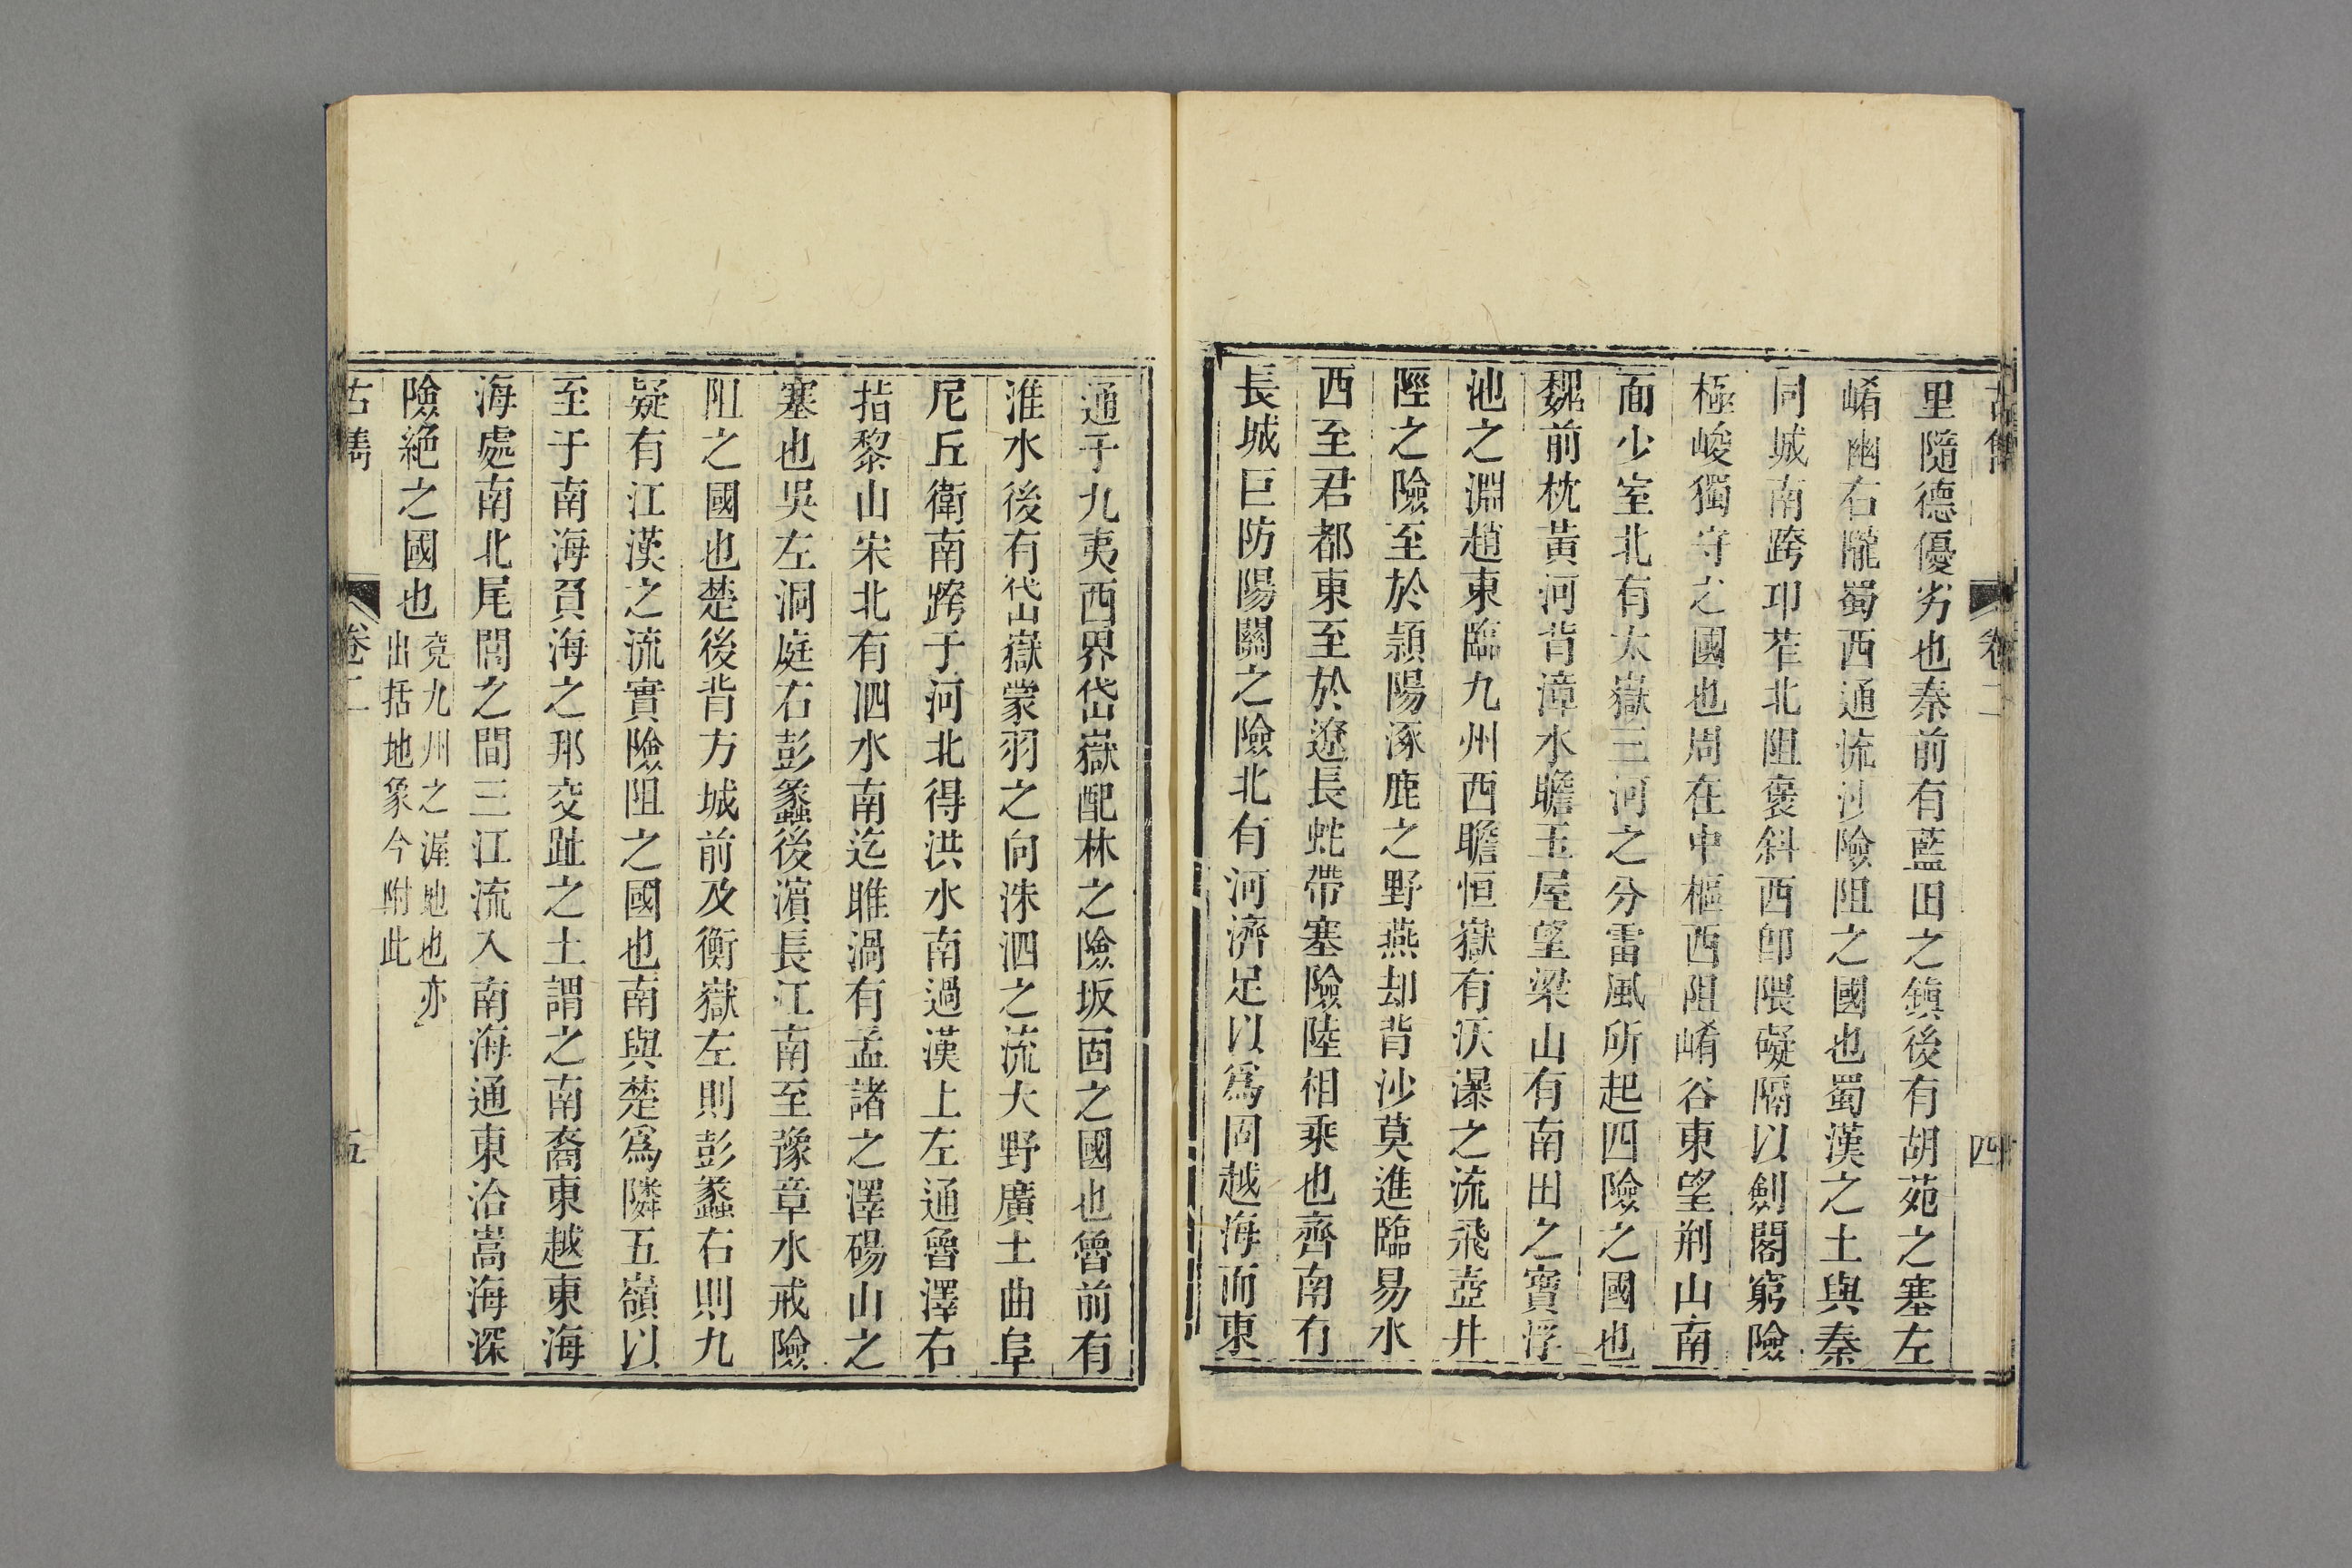 古雋
卷二
四
里隨德優劣也秦前有藍田之鎮後有胡苑之塞左
崤幽右隴蜀西通流沙險阻之國也蜀漢之土與秦
同城南跨卭苲北阻褒斜西卽隈礙隔以劍閣窮險
極峻獨守之國也周在中樞西阻崤谷東望荆山南
面少室北有太嶽三河之分雷風所起四險之國也
魏前枕黃河背漳水瞻王屋望梁山有南田之寶浮
池之淵趙東臨九州西瞻恒嶽有沃瀑之流飛壺井
陘之險至於潁陽涿鹿之野燕却背沙莫進臨易水
西至君都東至於遼長蛇帶塞險陸相乘也齊南有
長城巨防陽關之險北有河濟足以爲固越海而東
通于九夷西界岱嶽配林之險坂固之國也魯前有
淮水後有岱嶽蒙羽之向洙泗之流大野廣土曲阜
尼丘衛南跨于河北得洪水南過漢上左通魯澤右
指黎山宋北有泗水南迄睢渦有孟諸之澤碭山之
塞也吳左洞庭右彭蠡後濵長江南至豫章水戒險
阻之國也楚後背方城前及衡嶽左則彭蠡右則九
疑有江漢之流實險阻之國也南與楚爲隣五嶺以
至于南海負海之邦交趾之土謂之南裔東越東海
海處南北尾閭之間三江流入南海通東治嵩海深
險絕之國也
竟九州之渥地也亦
出括地象今附此
古雋
卷二
五